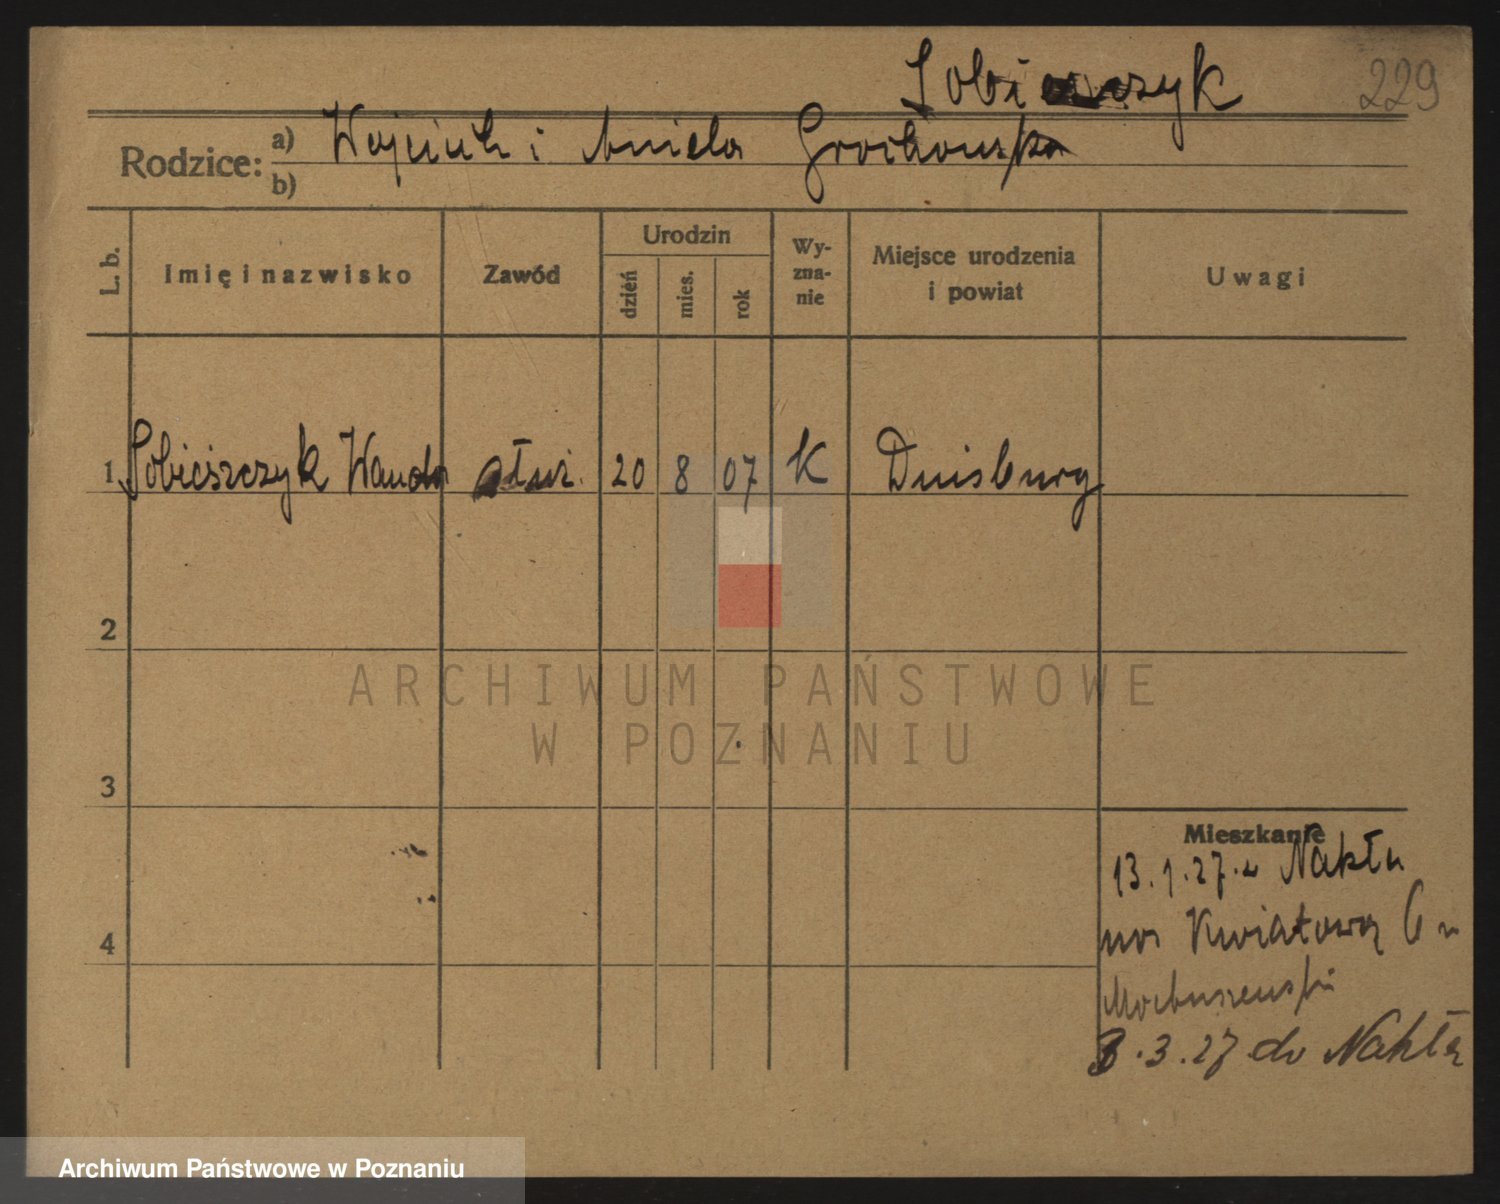 229
Rodzice: a) Wojciech i Aniela Grochowska
b)
L. b.
Imię i nazwisko
Zawód
Urodzin
dzień
mies.
rok
Wy-
zna-
nie
Miejsce urodzenia
i powiat
Uwagi
1 Sobieszczyk Wanda służ. 20 8 07 K Duisburg
2
3
4
Mieszkanie
13.1.27 z Nakła
na Kwiatową 6
8.3.27 do Nakła
ARCHIWUM PAŃSTWOWE
W POZNANIU
Archiwum Państwowe w Poznaniu